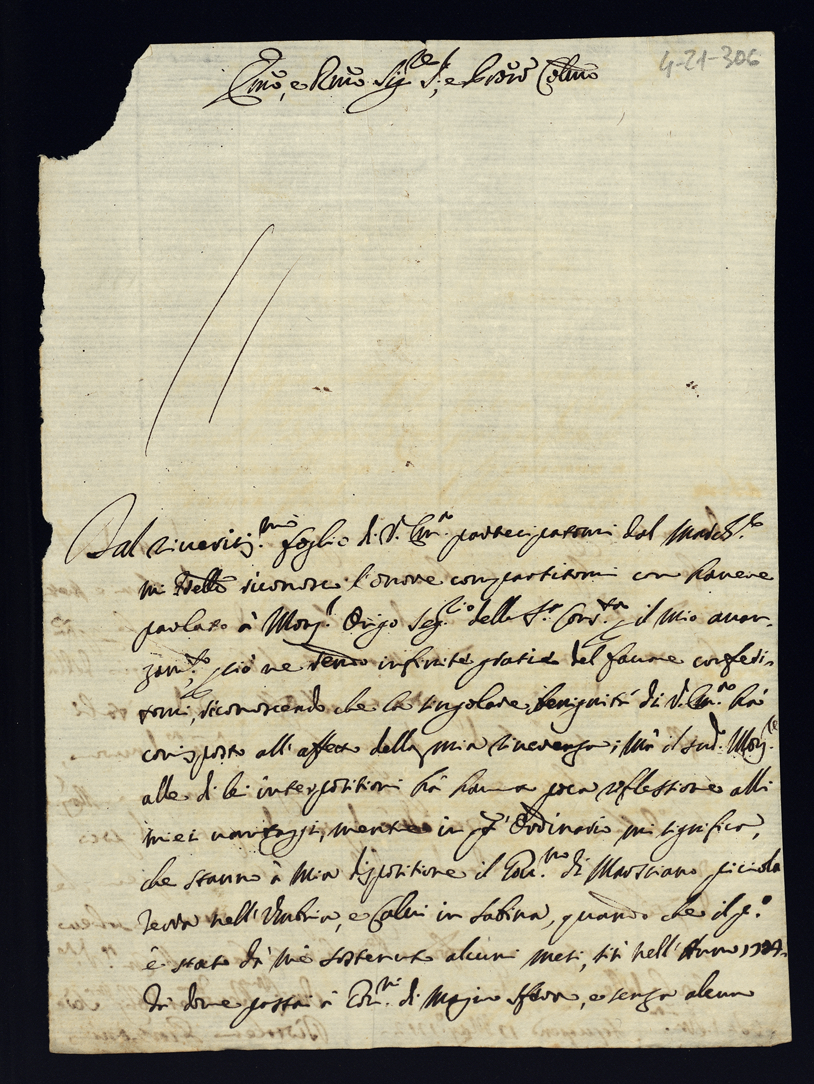 4-21-306
Emo, e Rmo Sigre S., e Prone Colmo
Dal riveritis.mo foglio di V. Em.a partecipatomi dal March.e
mi riconosco l'onore compartitomi con havere
parlato à Mons.r Origo Seg.rio della S.a Cons.ta p il mio avan-
zam.to, p ciò ne rendo infinite gratie del favore confedi-
tomi, riconoscendo che la singolare benignità di V. Em.a hà
corrisposto all'affetto della mia riverenza; mà il sud. Mons.re
alle di lei interpositioni hà havuta poca reflessione alli
miei vantaggi, mentre in q.to Ordinario mi significa,
che stanno à mia dispositione il Gov.no di Marsciano picciola
Terra nell'Umbria, e Calvi in Sabina, quando che il p.o
è stato dà mè sostenuto alcuni mesi, sin nell'Anno 1704.
dà dove passai à Gov.ni di maggior sfera, e senza alcun